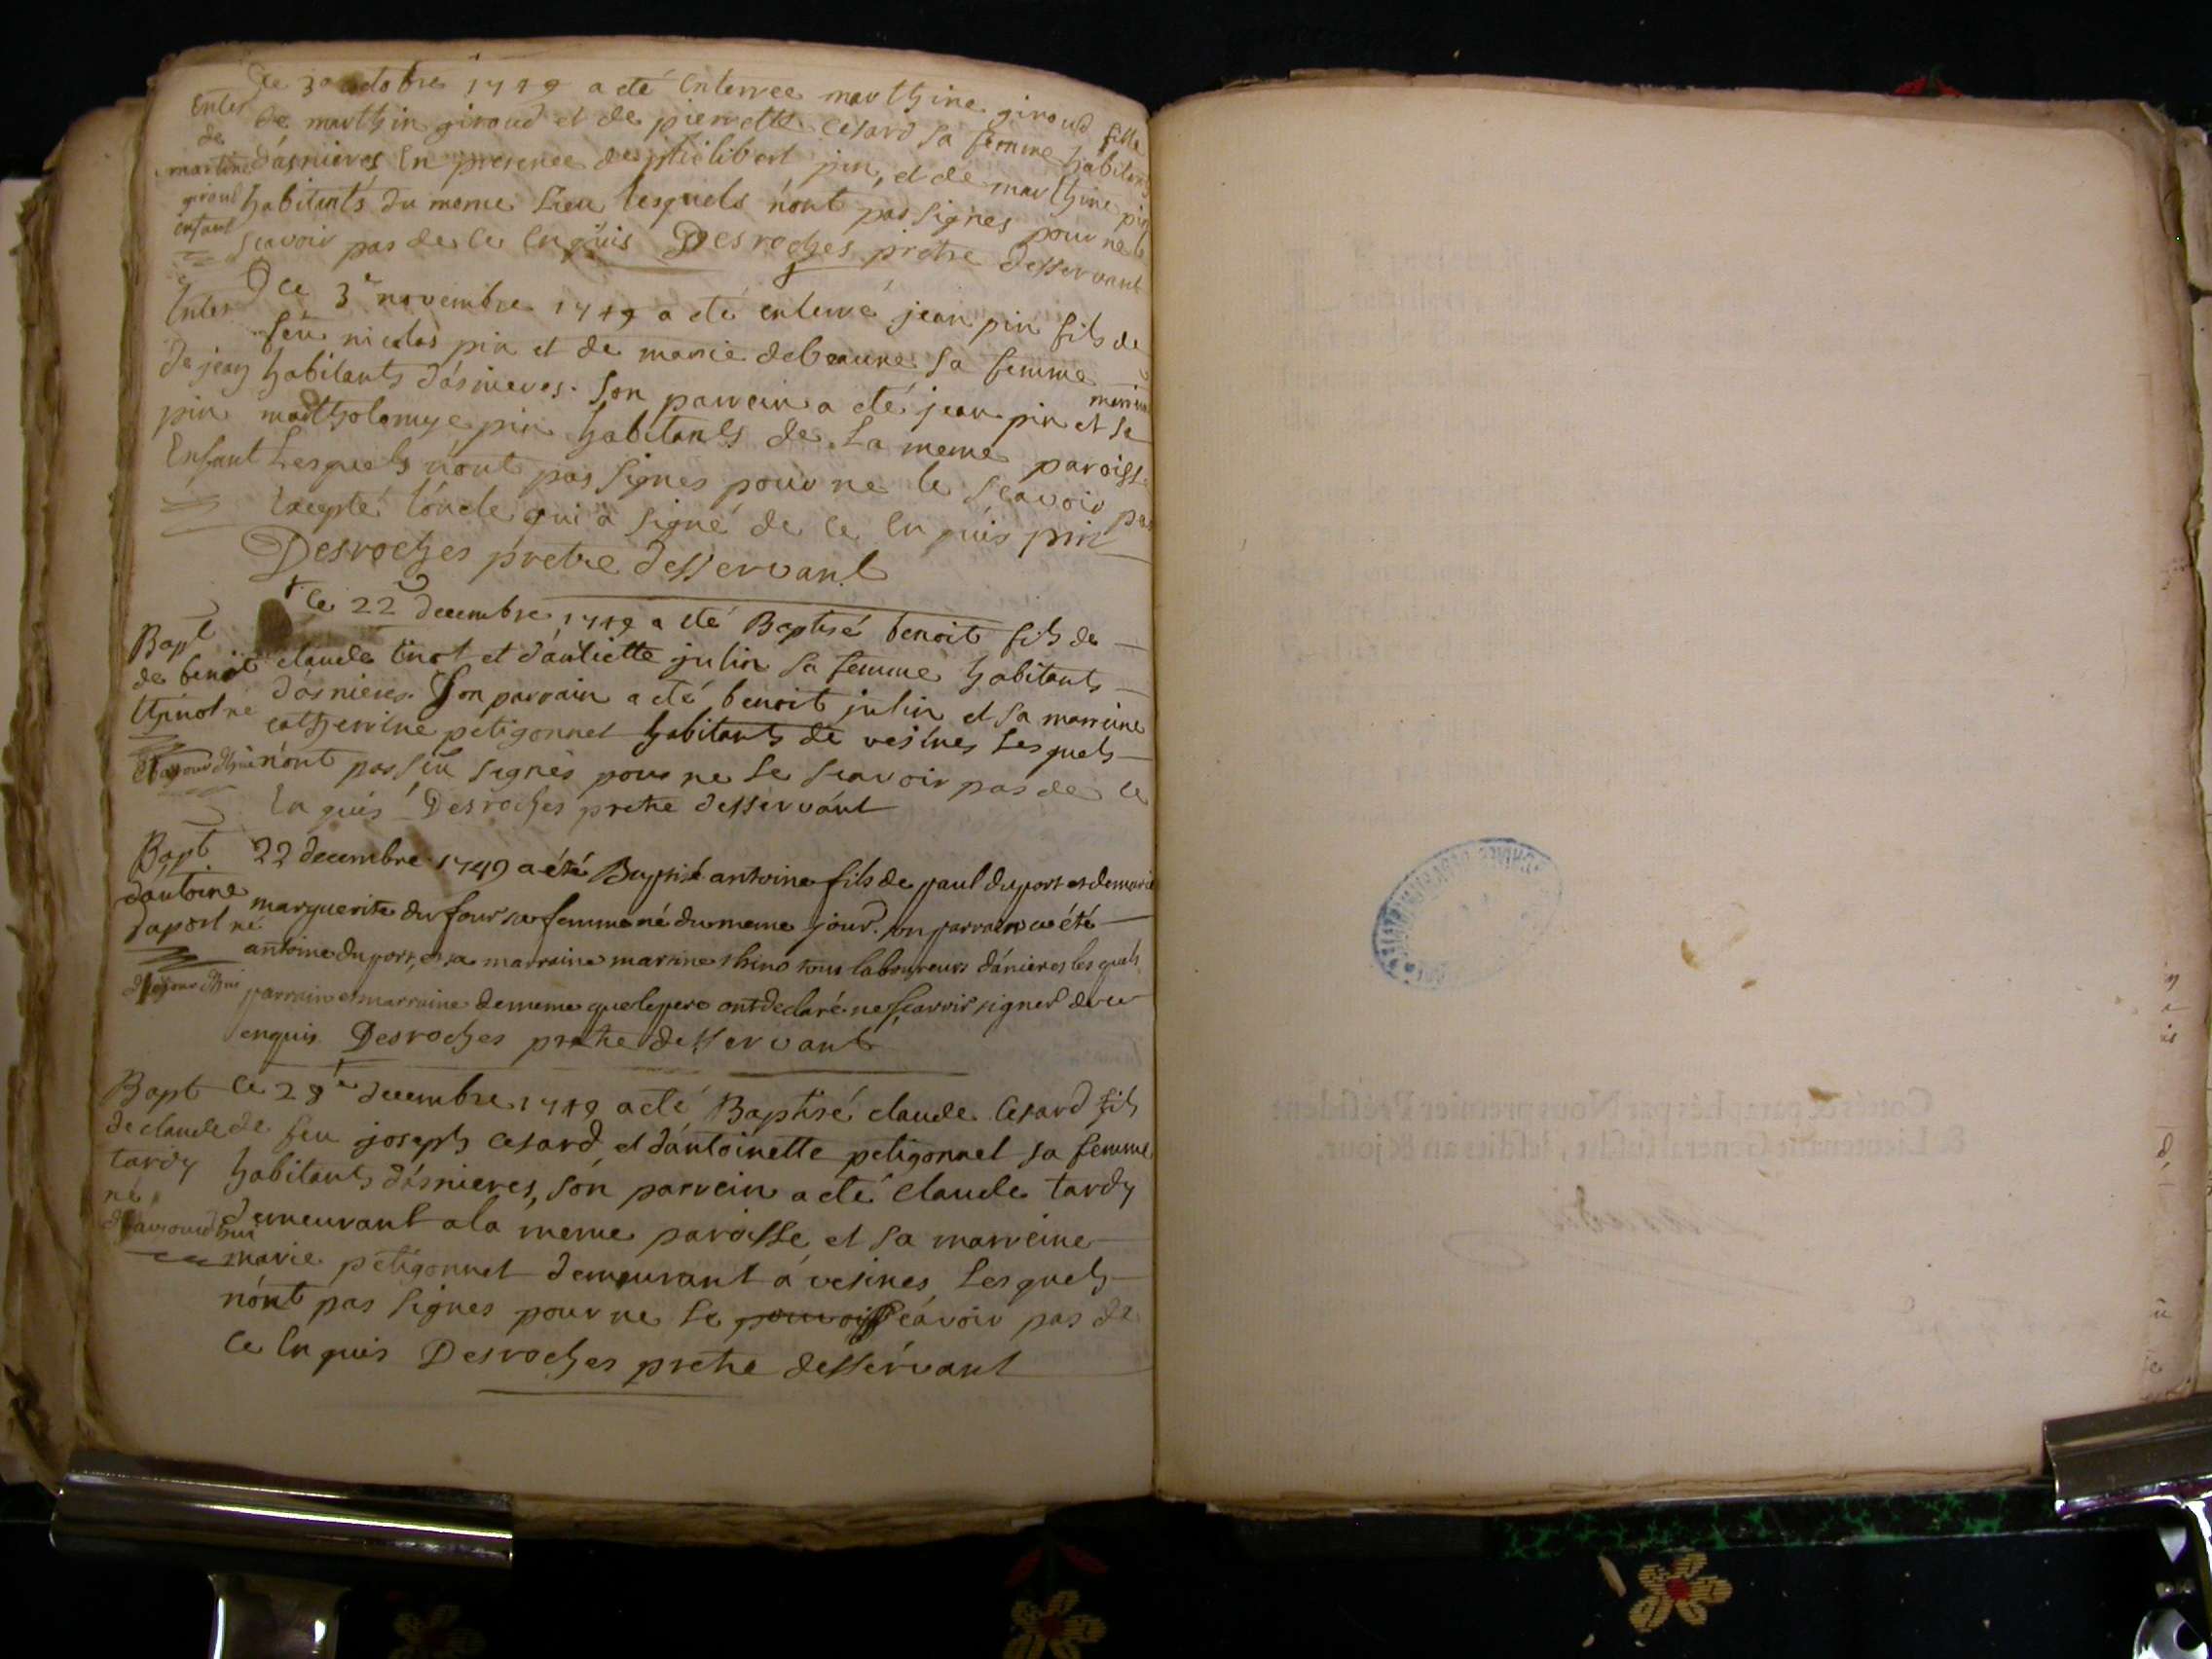 Le 30 octobre 1749 a eté Enterree marthine giroud fille
Enter de marthin giroud et de pierrette Cesard sa femme habitants
de
martine d'asnieres En presence de philibert pin, et de marthine pin
giroud habitants du meme Lieu lesquels n'ont pas signes pour ne le
enfant scavoir pas de ce Enquis Desroches pretre desservant
Le 3e novembre 1749 a eté enterré jean pin fils de
Enter feu nicolas pin et de marie debeaune sa femme
de jean habitants d'asnieres. Son parrein a eté jean pin et sa marreine
pin marthyolemye pin habitants de La meme paroisse
Enfant Lesquels n'ont pas signes pour ne le scavoir pas
Excepté l'oncle qui a signé de ce Enquis pin
Desroches pretre desservant
le 22e decembre 1749 a eté Baptisé benoit fils de
Bapt
de benoit claude tinot et d'antiette julin sa femme habitants
thinot né d'asnieres. Son parrain a eté benoit julin et sa marreine
catherrine petigonnet habitants de vesines Lesquels
d'aujourd'hui n'ont pas signés pour ne le scavoir pas de ce
Enquis Desroches pretre desservant
Bapt. 22 decembre 1749 a été Baptisé antoine fils de paul duport et de marie
d'antoine marguerite du four sa femme né du meme jour. son parrain a été
duport né antoine duport, et sa marraine martine thino tous laboureurs d'ânieres lesquels
d'aujourd'hui parrain et marraine de meme que le pere ont declaré ne scavoir signer de ce
enquis Desroches pretre desservant
Bapt Le 28e decembre 1749 a eté Baptisé claude Cesard fils
de claude de feu joseph cesard et d'antoinette petigonnet sa femme
tardy habitants d'asnieres, son parrein a eté Claude tardy
né demeurant a la meme paroisse et sa marreine
d'aujourd'hui marie petigonnet demeurant á vesines Lesquels
n'ont pas signes pour ne le scavoir pas de
ce Enquis Desroches pretre desservant